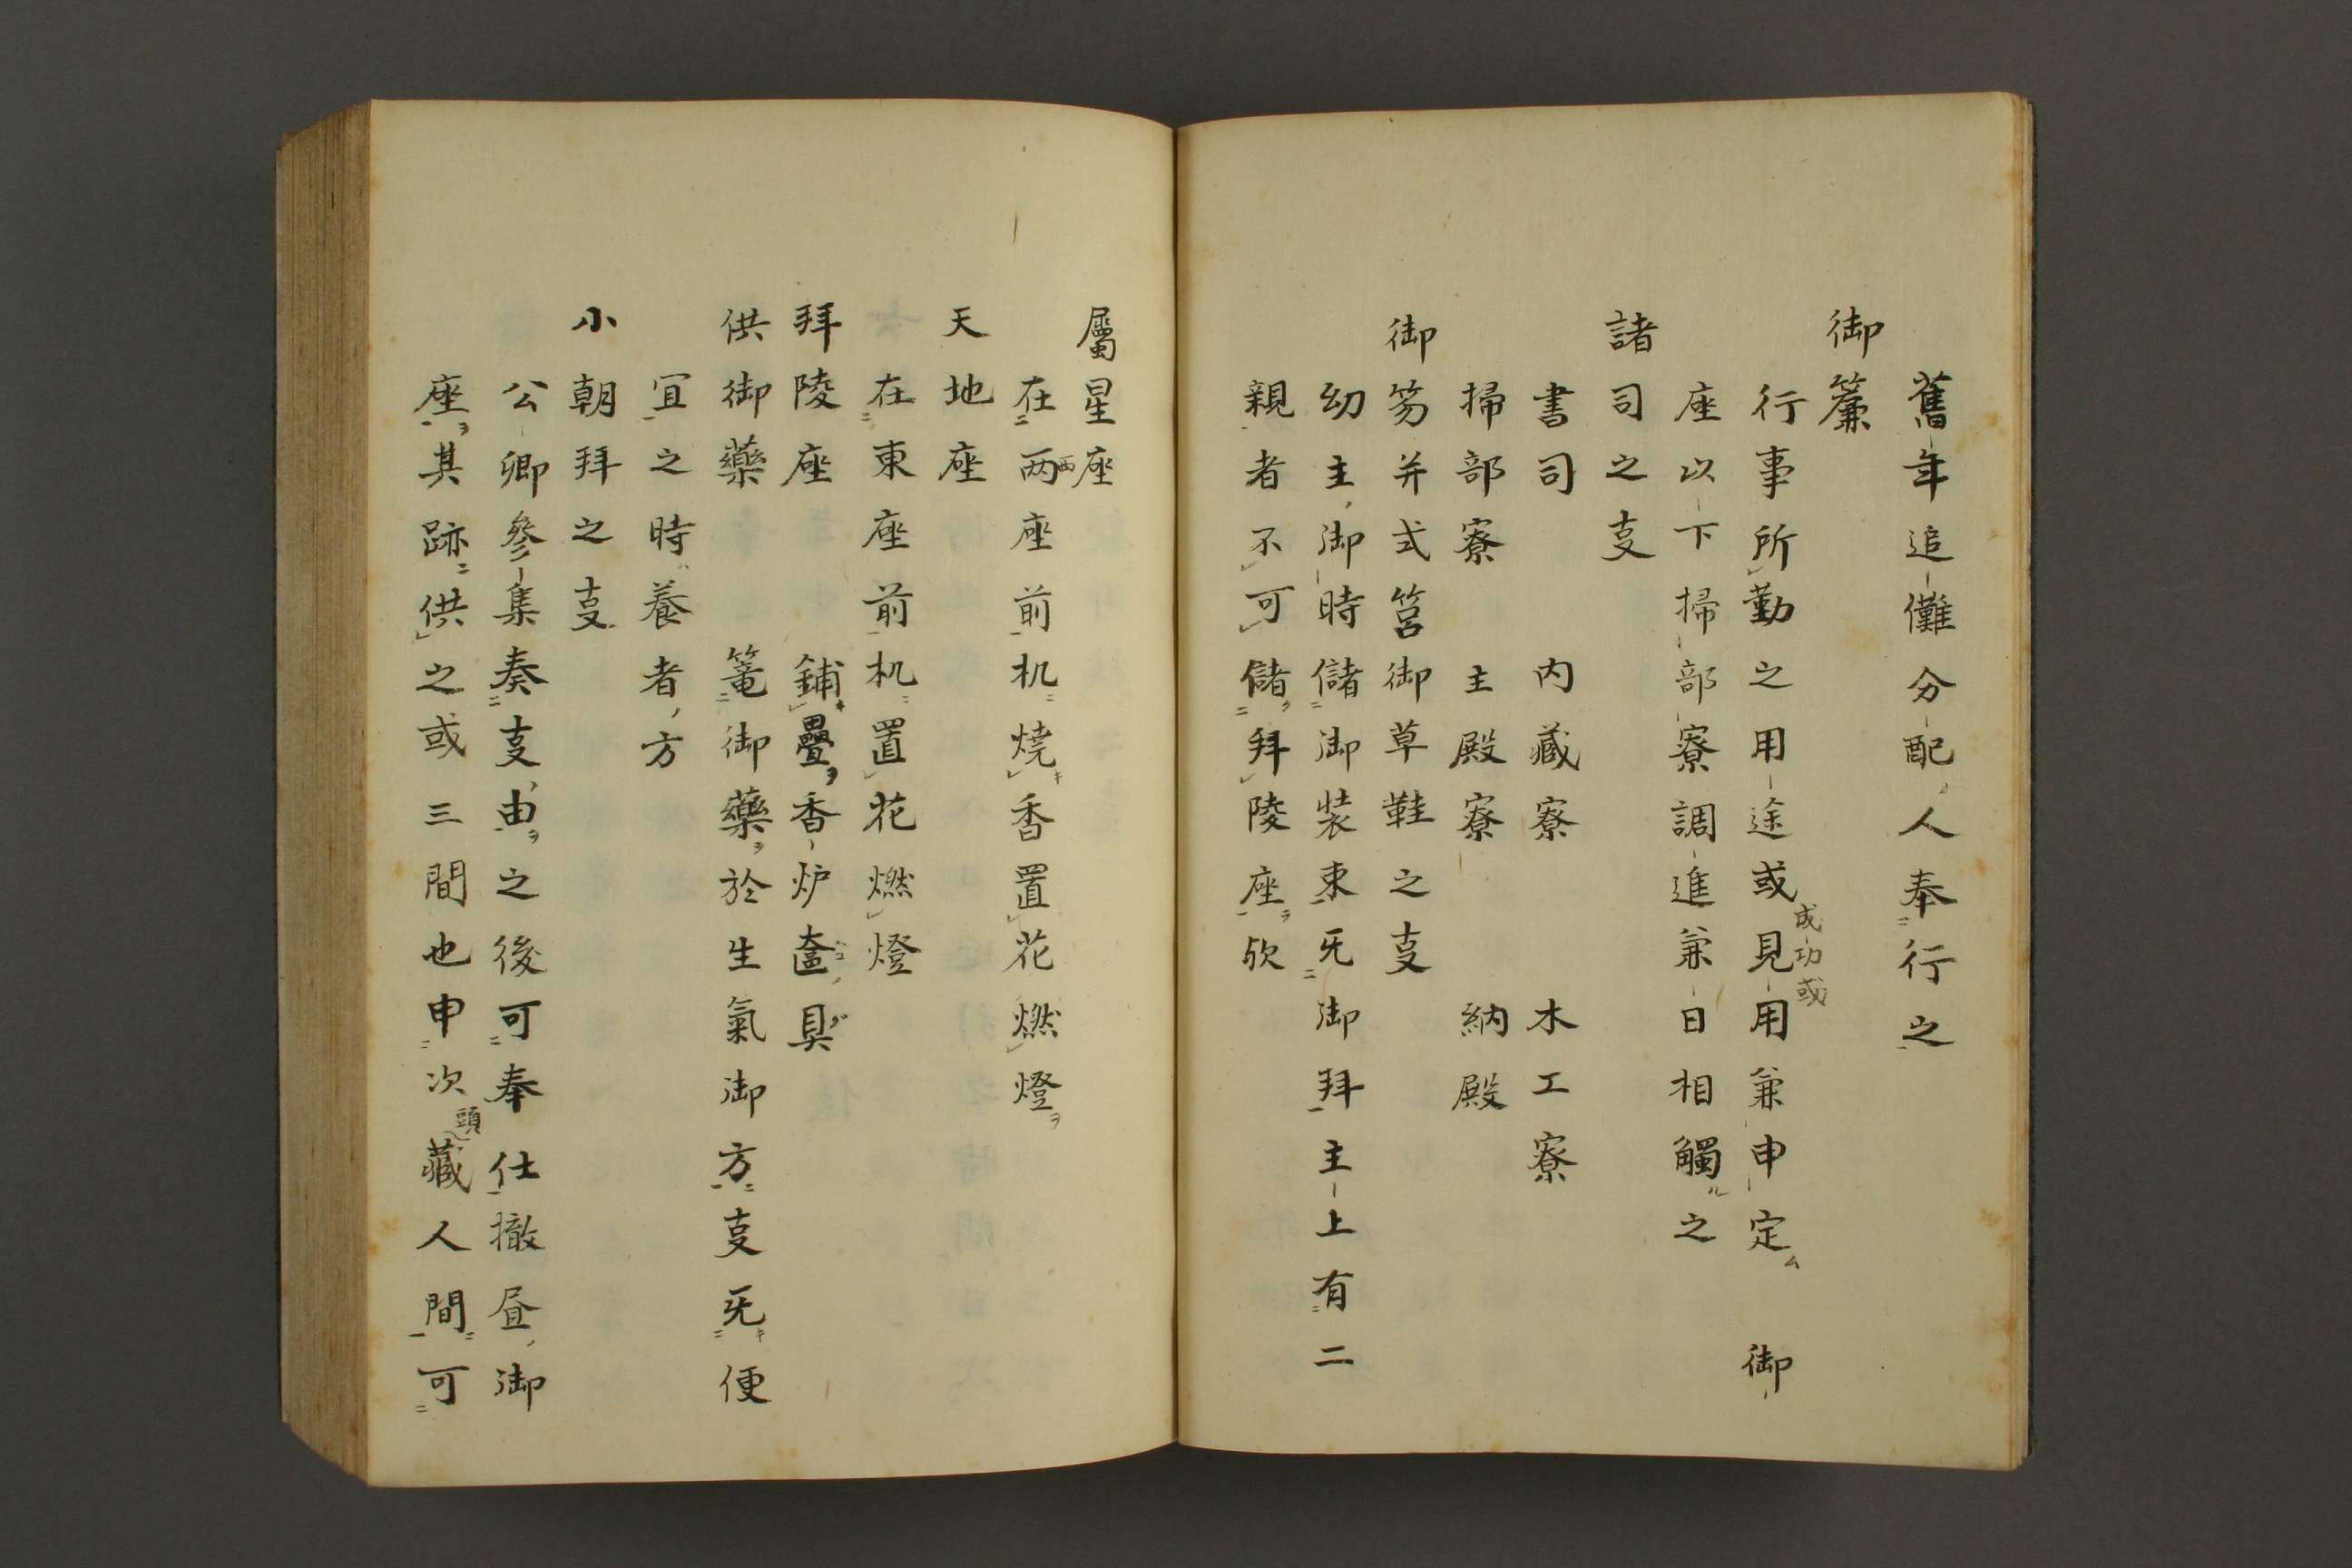 舊年追儺分配人奉行之
御簾
行事所勤之用途或見用兼申定 御
成功或
座以下掃部寮調進兼日相觸之
諸司之支
書司 内藏寮 木工寮
掃部寮 主殿寮 納殿
御笏并式筥御草鞋之支
幼主御時儲御装束旡御拜主上有二
親者不可儲拜陵座欤
屬星座
在两座前机燒香置花燃燈
西
天地座
在東座前机置花燃燈
拜陵座 鋪疊香炉奩具
供御藥 篭御藥於生氣御方支旡便
宜之時養者方
小朝拜之支
公卿參集奏支由之後可奉仕撤昼御
座其跡供之或三間也申次藏人間可
頭